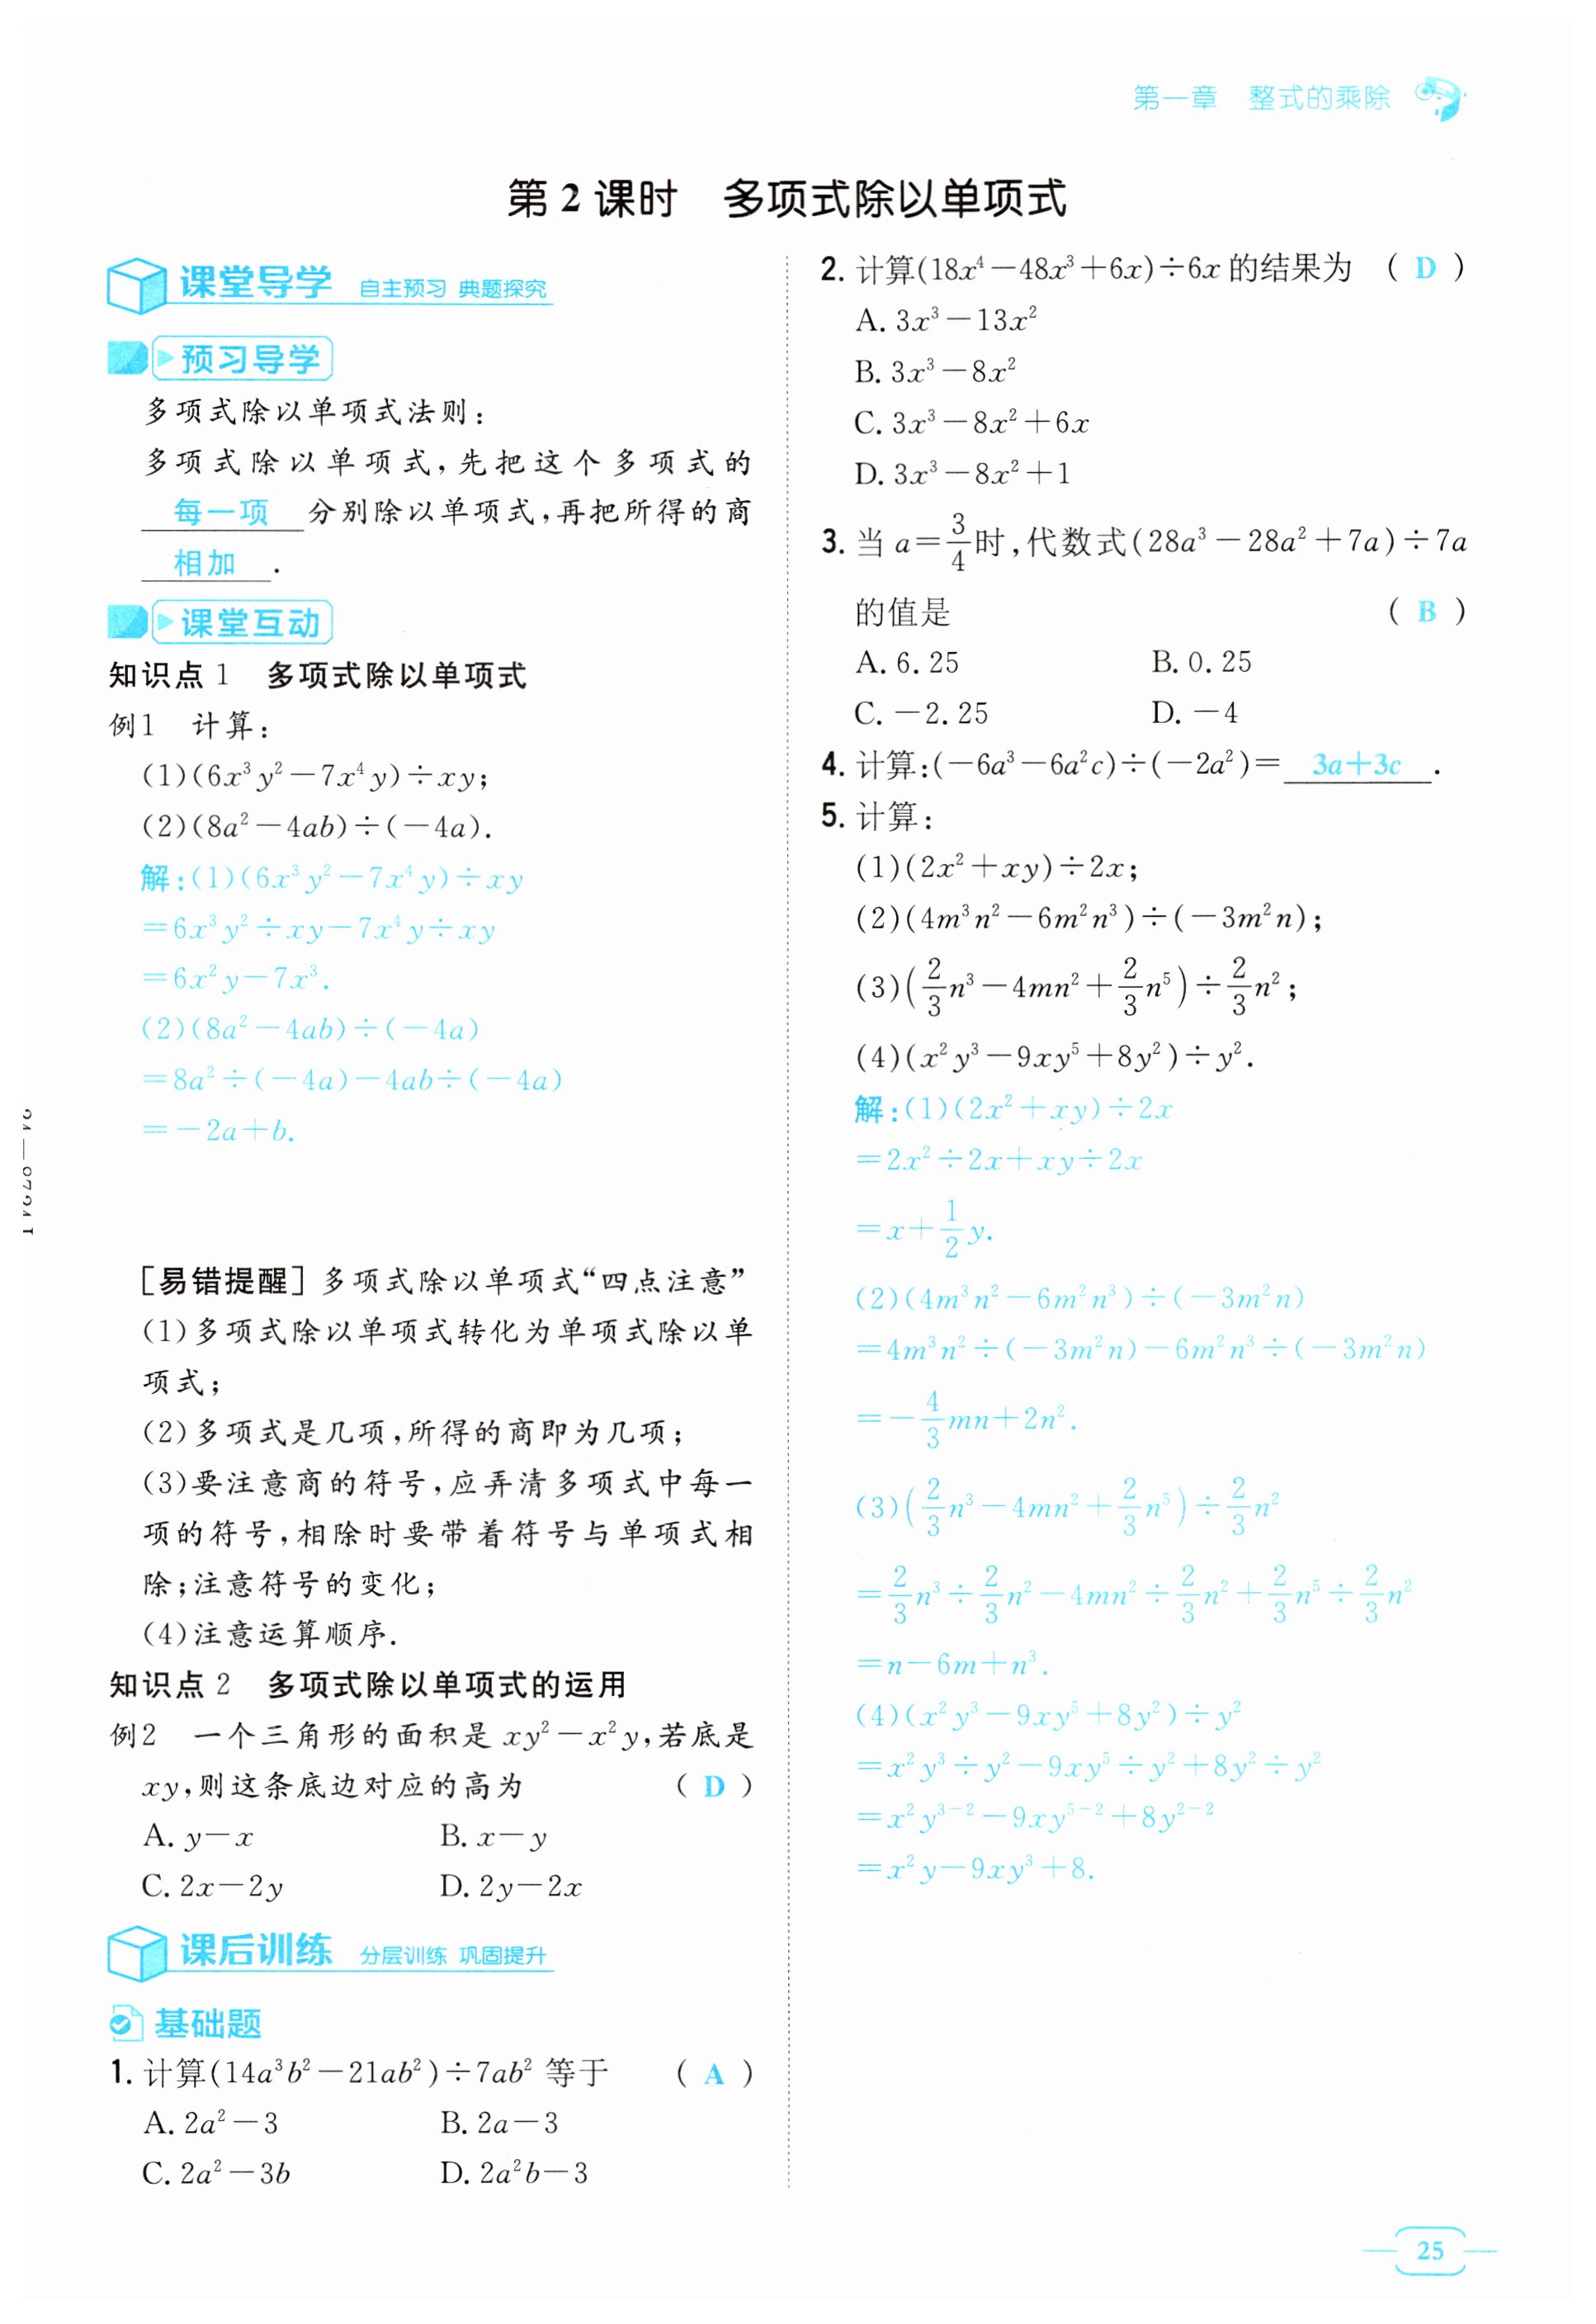 第一章 整式的乘除
第2课时 多项式除以单项式
课堂导学 自主预习 典题探究
预习导学
多项式除以单项式法则:
多项式除以单项式,先把这个多项式的
每一项 分别除以单项式,再把所得的商
相加 .
课堂互动
知识点1 多项式除以单项式
例1 计算:
(1)(6x³y²－7x⁴y)÷xy;
(2)(8a²－4ab)÷(－4a).
解:(1)(6x³y²－7x⁴y)÷xy
＝6x³y²÷xy－7x⁴y÷xy
＝6x²y－7x³.
(2)(8a²－4ab)÷(－4a)
＝8a²÷(－4a)－4ab÷(－4a)
＝－2a＋b.
[易错提醒]多项式除以单项式“四点注意”
(1)多项式除以单项式转化为单项式除以单
项式;
(2)多项式是几项,所得的商即为几项;
(3)要注意商的符号,应弄清多项式中每一
项的符号,相除时要带着符号与单项式相
除;注意符号的变化;
(4)注意运算顺序.
知识点2 多项式除以单项式的运用
例2 一个三角形的面积是xy²－x²y,若底是
xy,则这条底边对应的高为 ( D )
A. y－x B. x－y
C. 2x－2y D. 2y－2x
课后训练 分层训练 巩固提升
基础题
1. 计算(14a³b²－21ab²)÷7ab²等于 ( A )
A. 2a²－3 B. 2a－3
C. 2a²－3b D. 2a²b－3
2. 计算(18x⁴－48x³＋6x)÷6x的结果为 ( D )
A. 3x³－13x²
B. 3x³－8x²
C. 3x³－8x²＋6x
D. 3x³－8x²＋1
3. 当a＝3/4时,代数式(28a³－28a²＋7a)÷7a
的值是 ( B )
A. 6.25 B. 0.25
C. －2.25 D. －4
4. 计算:(－6a³－6a²c)÷(－2a²)＝ 3a＋3c .
5. 计算:
(1)(2x²＋xy)÷2x;
(2)(4m³n²－6m²n³)÷(－3m²n);
(3)(2/3n³－4mn²＋2/3n⁵)÷2/3n²;
(4)(x²y³－9xy⁵＋8y²)÷y².
解:(1)(2x²＋xy)÷2x
＝2x²÷2x＋xy÷2x
＝x＋1/2y.
(2)(4m³n²－6m²n³)÷(－3m²n)
＝4m³n²÷(－3m²n)－6m²n³÷(－3m²n)
＝－4/3mn＋2n².
(3)(2/3n³－4mn²＋2/3n⁵)÷2/3n²
＝2/3n³÷2/3n²－4mn²÷2/3n²＋2/3n⁵÷2/3n²
＝n－6m＋n³.
(4)(x²y³－9xy⁵＋8y²)÷y²
＝x²y³÷y²－9xy⁵÷y²＋8y²÷y²
＝x²y³⁻²－9xy⁵⁻²＋8y²⁻²
＝x²y－9xy³＋8.
25